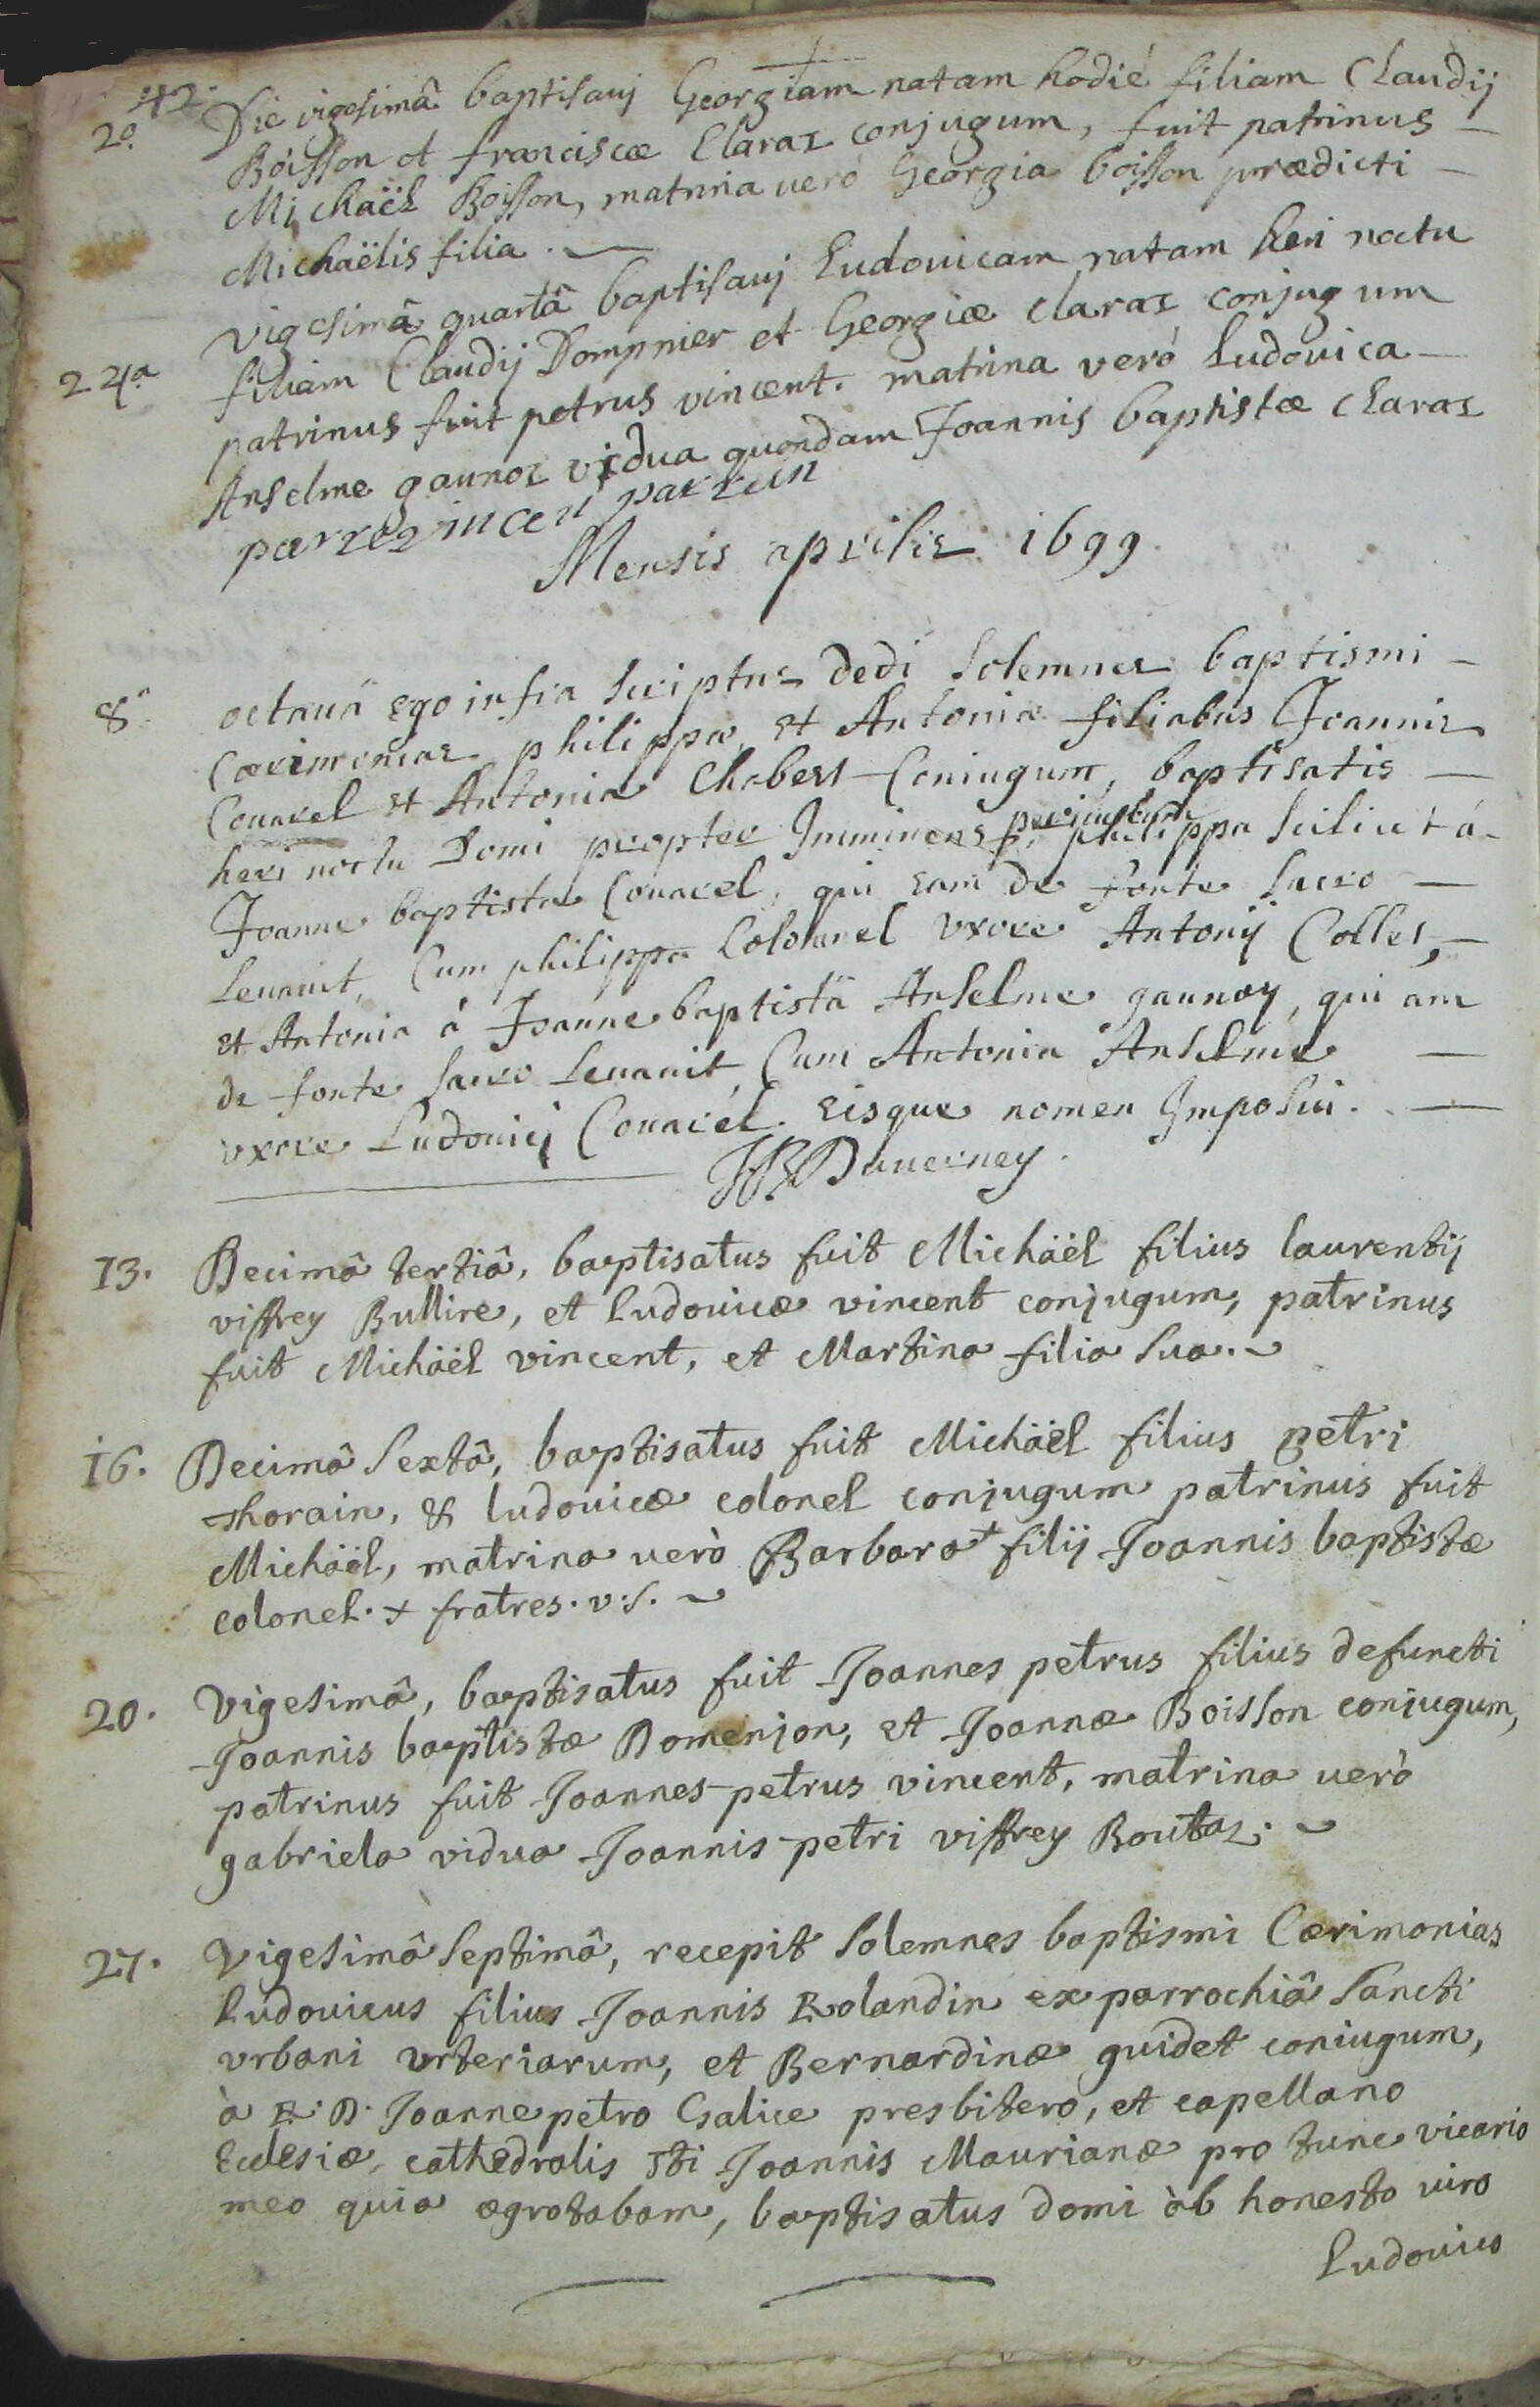 42.
20. Die vigesimâ baptisavj Georgiam natam hodié filiam Claudij
Boisson et franciscæ Claraz conjugum, fuit patrinus —
Michaël Boisson, matrina veró Georgia boisson prædicti —
Michaëlis filia. —
vigesimâ quartâ baptisavj Ludovicam natam heri noctu
24a. filiam Claudij Dompnier et Georgiæ claraz conjugum
patrinus fuit petrus vincent. matrina veró Ludovica —
Anselme gaunoz vidua quondam Joannis baptistæ claraz
parrain
Mensis aprilis 1699
8a. octaua ego infra scriptus dedi solemnes baptismi —
Cærimonias philippæ, et Antoniæ filiabus Joannis
Couarel et Antoniæ Chabert Coniugum, baptisatis —
heri noctu Domi propter Imminens periculum, philippa scilicet á-
Joanne baptista Couarel, qui eam de fonte sacro —
Leuauit, Cum philippa Colounel vxore Antonij Collet, —
et Antonia á Joanne baptistâ Anselme gaunoy, qui am
de fonte sacro Leuauit, Cum Antonia Anselme —
vxore Ludouicj Couarel. eisque nomen Imposui. —
JB Dauerney.
13. Decimâ tertiâ, baptisatus fuit Michäel filius laurentij
viffrey Bullire, et Ludouicæ vincent conjugum, patrinus
fuit Michäel vincent, et Martina filia sua.
16. Decimâ sextâ, baptisatus fuit Michäel filius petri
thorain, & ludouicæ colonel conjugum patrinus fuit
Michäel, matrina uerò Barbara + filij Joannis baptistæ
colonel. + fratres. v.s.
20. Vigesimâ, baptisatus fuit Joannes petrus filius defuncti
Joannis baptistæ Domenjon, et Joannæ Boisson conjugum,
patrinus fuit Joannes-petrus vincent, matrina uerò
gabriela vidua Joannis-petri viffrey Boutaz.
27. Vigesimâ septimâ, recepit solemnes baptismi Cærimonias
Ludouicus filius Joannis Rolandin ex parrochiâ sancti
vrbani vrteriarum, et Bernardinæ guidet coniugum,
à R. D. Joannepetro Galice presbitero, et capellano
Eclesiæ, cathedralis sti Joannis Maurianæ pro tunc vicario
meo quia ægrotabam, baptisatus domi àb honesto uiro
Ludouico